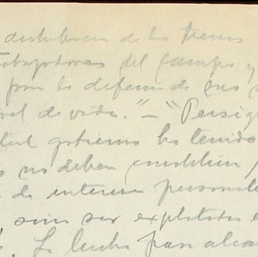 distribucion de las tierras
trabajadores del campo y
por la defensa de sus
nivel de vida." — "Persigue
tal gobierno ha tenido
no deben constituir
de interes personal
sin ser explotados
La lucha para alca